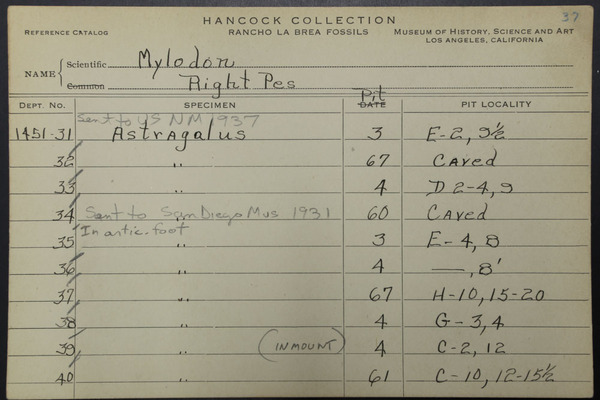 37
HANCOCK COLLECTION
REFERENCE CATALOG RANCHO LA BREA FOSSILS MUSEUM OF HISTORY, SCIENCE AND ART
LOS ANGELES, CALIFORNIA
NAME { Scientific Mylodon
Common Right Pes
DEPT. NO. SPECIMEN Pit DATE PIT LOCALITY
Sent to US NM 1937
1451-31 Astragalus 3 E-2, 9½
32 " 67 Caved
33 " 4 D 2-4, 9
34 Sent to San Diego Mus 1931 60 Caved
In artic. foot
35 " 3 E-4, 8
36 " 4 —, 8'
37 " 67 H-10, 15-20
38 " 4 G-3, 4
39 " (IN MOUNT) 4 C-2, 12
40 " 61 C-10, 12-15½